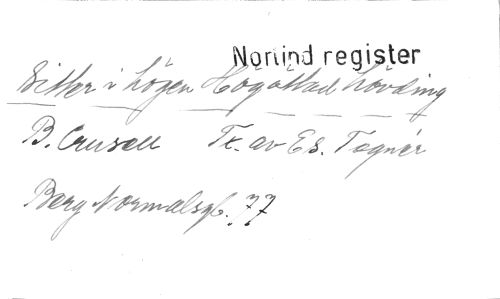 Norlind register
Sitter i högen Högättad hövding
B. Crusell Tx. av Es. Tegnér
Berg Normalsgb. 77